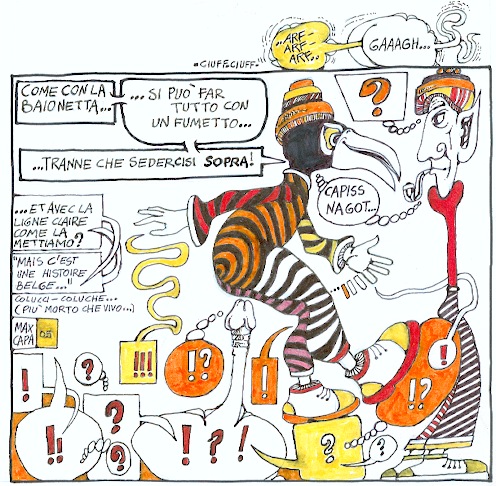 ..ARF-
ARF-
ARF..
GAAAGH...
"CIUFF-CIUFF"
COME CON LA
BAIONETTA...
...SI PUO' FAR
TUTTO CON
UN FUMETTO...
!?
...TRANNE CHE SEDERCISI SOPRA!
CAPISS
NAGOT...
...ET AVEC LA
LIGNE CLAIRE
COME LA
METTIAMO?
"MAIS C'EST
UNE HISTOIRE
BELGE..."
COLUCCI-COLUCHE...
(PIU' MORTO CHE VIVO...)
MAX
CAPA
!!!
!?
!
!
!?
!
?
?
!!
?
!?!
?
?